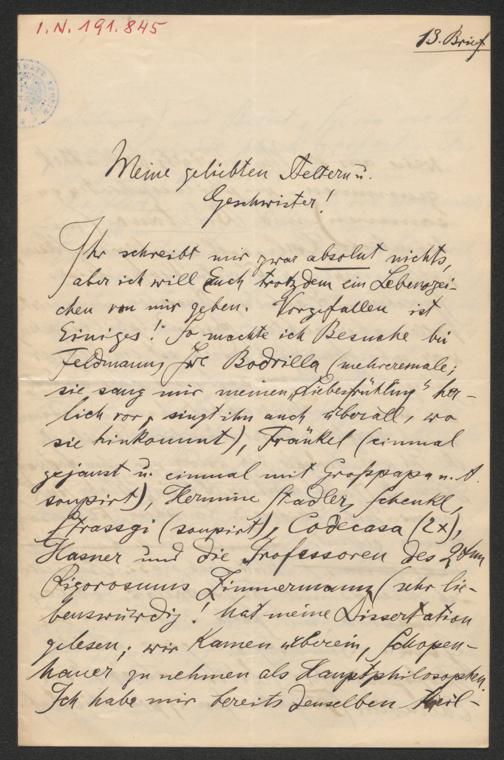 I.N. 191.845
13. Brief
Meine geliebten Aeltern u.
Geschwister!
Ihr schreibt mir zwar absolut nichts,
aber ich will Euch trotzdem ein Lebenszei-
chen von mir geben. Vorgefallen ist
Einiges! So machte ich Besuche bei
Feldmann, Bodrilla (mehreremale;
sie sang mir meinen „Liebesfrühling" her-
lich vor, singt ihn auch überall, wo
sie hinkommt), Fränkel (einmal
gejaust u. einmal mit Großpapa u. A.
soupirt), Hermine Stadler, Schenkl,
Strassgi (soupirt), Codecasa (2x),
Hasner und die Professoren des 2ten
Rigorosums Zimmermann (sehr lie-
benswürdig! hat meine Dissertation
gelesen; wir kamen überein, Schopen-
hauer zu nehmen als Hauptphilosophen.
Ich habe mir bereits denselben